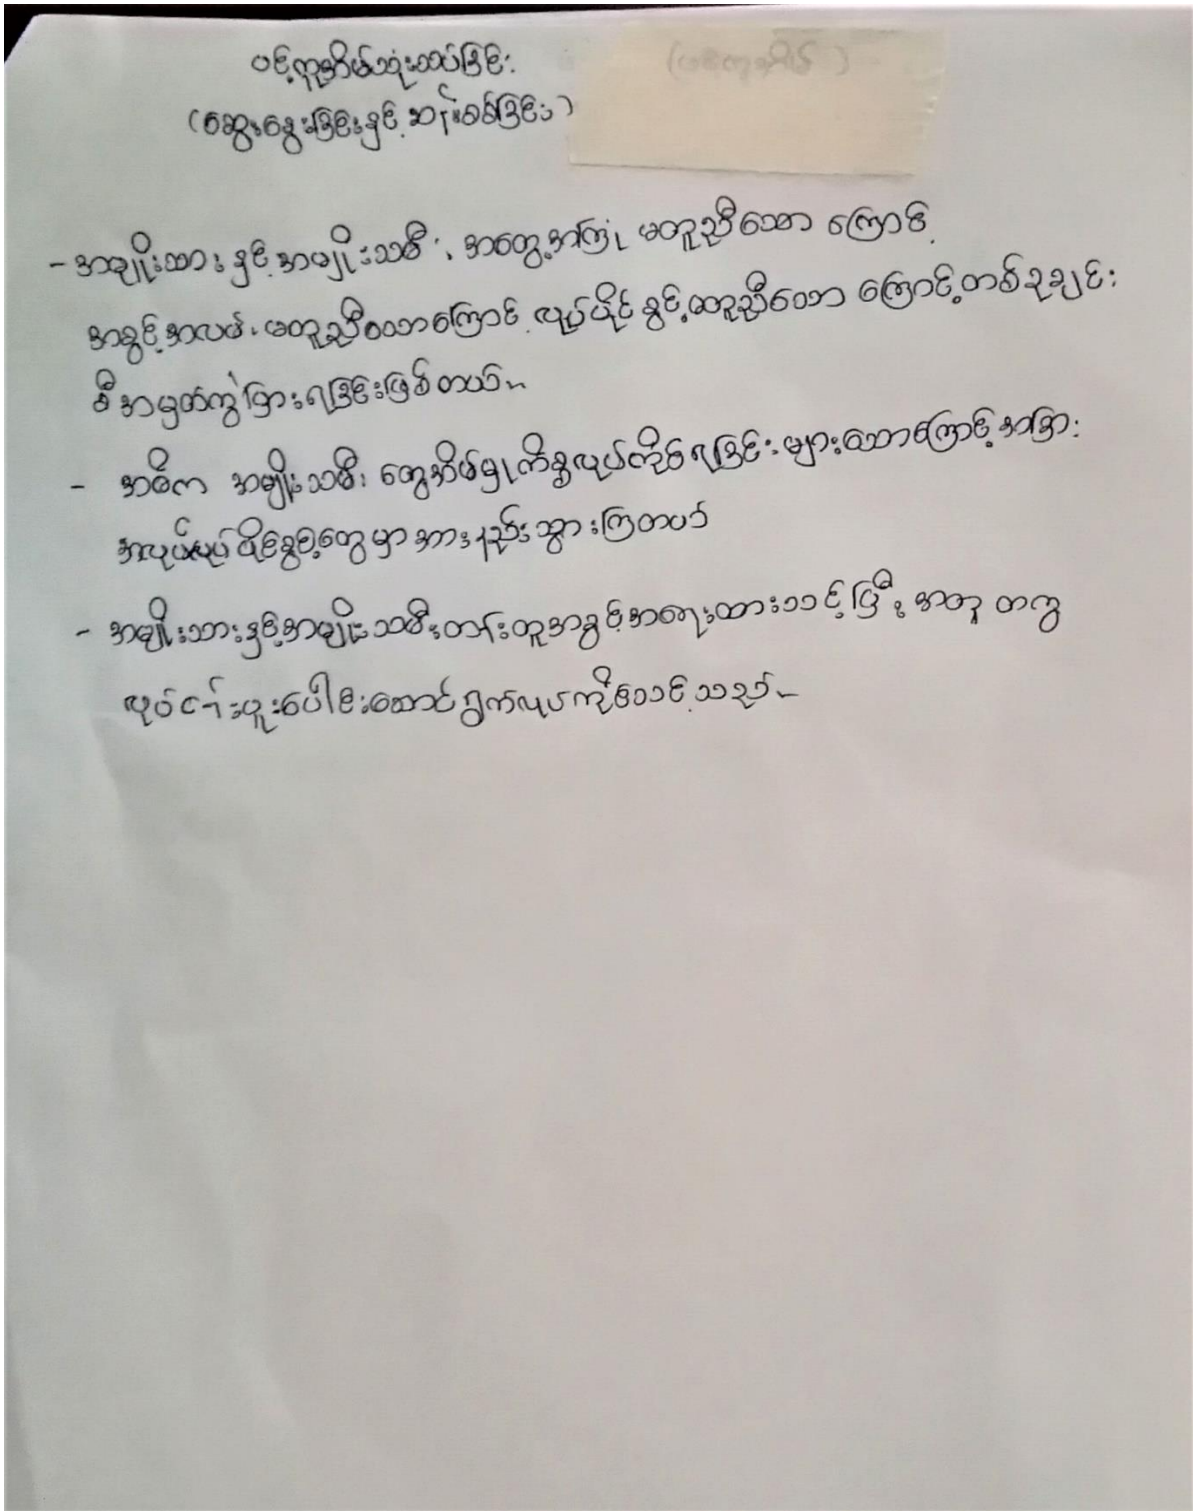 ပင့်ကူအိမ်သုံးသပ်ခြင်း
(ဆွေးနွေးခြင်းနှင့် ဆန်းစစ်ခြင်း)
- အမျိုးသား နှင့် အမျိုးသမီး အတွေ့အကြုံ မတူညီသော ကြောင့်
အခွင့်အလမ်း မတူညီသောကြောင့် လုပ်ပိုင်ခွင့်မတူညီသော ကြောင့် တစ်ခုချင်း
စီအမှတ်ကွဲပြားရခြင်းဖြစ်တယ်။
- အဓိက အမျိုးသမီး တွေအိမ်မှုကိစ္စလုပ်ကိုင်ရခြင်း များသောကြောင့် အခြား
အလုပ်လုပ်ပိုင်ခွင့်တွေမှာ အားနည်းသွားကြတယ်
- အမျိုးသားနှင့်အမျိုးသမီးတန်းတူအခွင့်အရေးထားသင့်ပြီး အတူ တကွ
လုပ်ငန်းပူးပေါင်းဆောင်ရွက်လုပ်ကိုင်သင့်သည်။